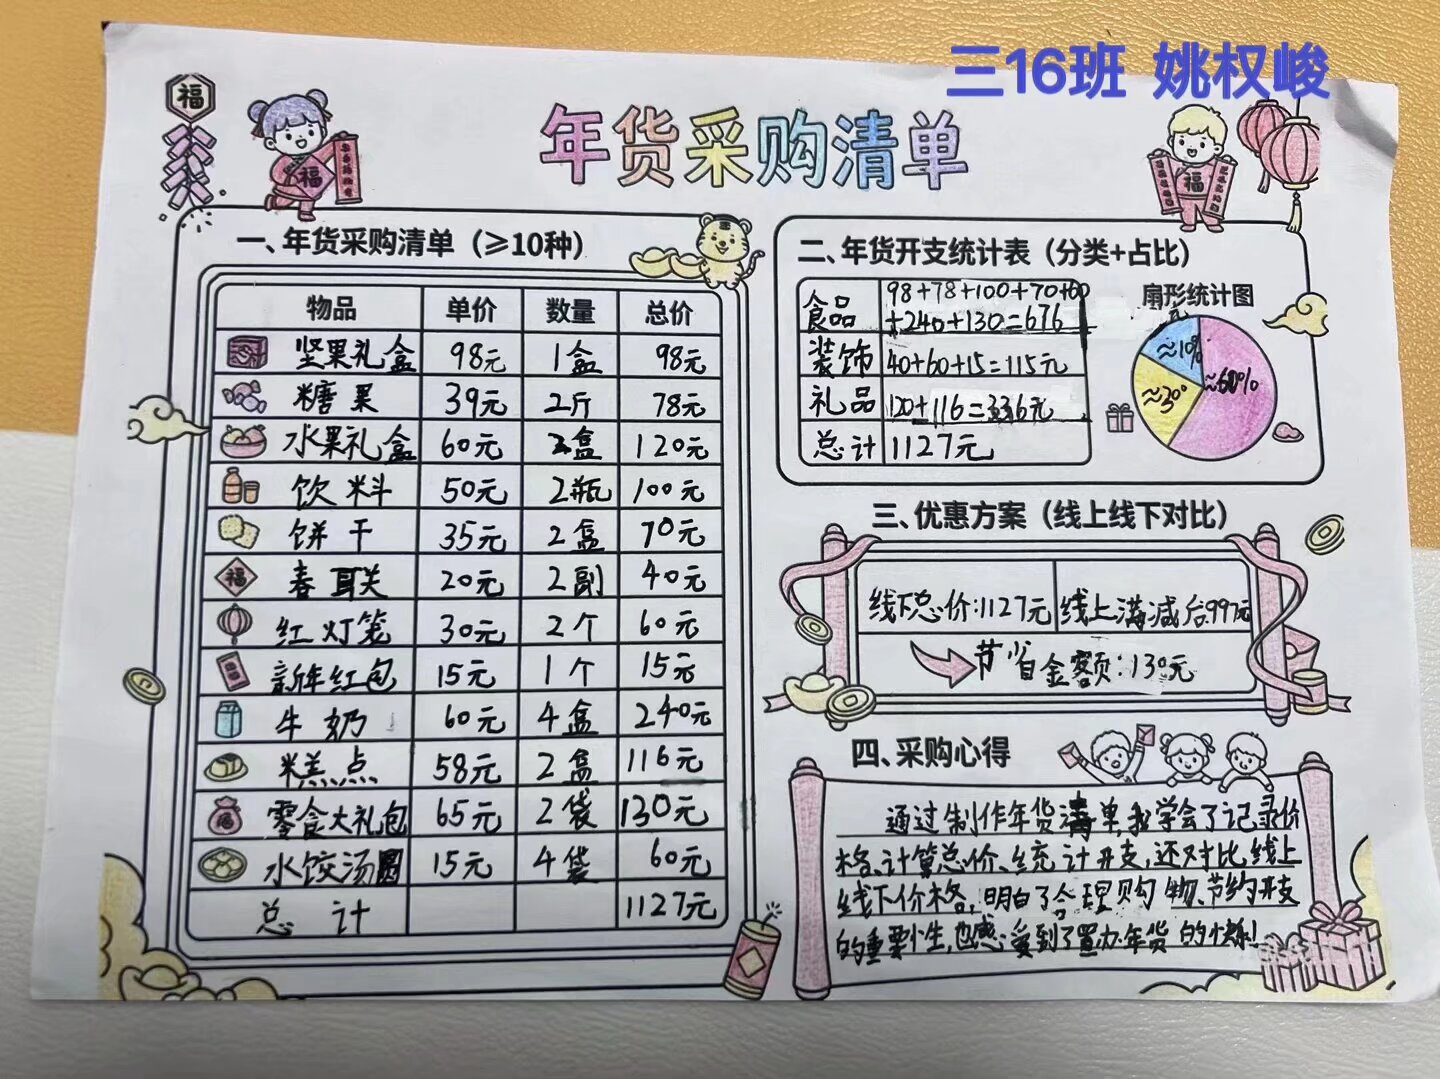 三16班 姚权峻
福
年货采购清单
福
福
一、年货采购清单（≥10种）
物品 单价 数量 总价
坚果礼盒 98元 1盒 98元
糖果 39元 2斤 78元
水果礼盒 60元 2盒 120元
饮料 50元 2瓶 100元
饼干 35元 2盒 70元
福 春联 20元 2副 40元
红灯笼 30元 2个 60元
新年红包 15元 1个 15元
牛奶 60元 4盒 240元
糕点 58元 2盒 116元
零食大礼包 65元 2袋 130元
水饺汤圆 15元 4袋 60元
总计 1127元
二、年货开支统计表（分类+占比）
食品 98+78+100+70+60
+240+130=676
装饰 40+60+15=115元
礼品 120+116=336元
总计 1127元
扇形统计图
≈10%
≈60%
≈30
三、优惠方案（线上线下对比）
线下总价:1127元 线上满减后:997元
节省金额:130元
四、采购心得
通过制作年货清单,我学会了记录价
格、计算总价、统计开支,还对比线上
线下价格,明白了合理购物、节约开支
的重要性,也感受到了置办年货的快乐!